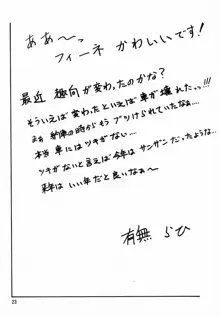 ああ〜っ
フィーネ かわいいです!
最近 趣向が変わったのかな?
そういえば変わったといえば車が壊れた…っ!!!
まぁ 納車の時からもうブツけられていたなぁ…
本当 車にはツキがない…
ツキがないと言えば今年はサンザンだったような…
来年は いい年だと良いなぁ〜
有無 らひ
23